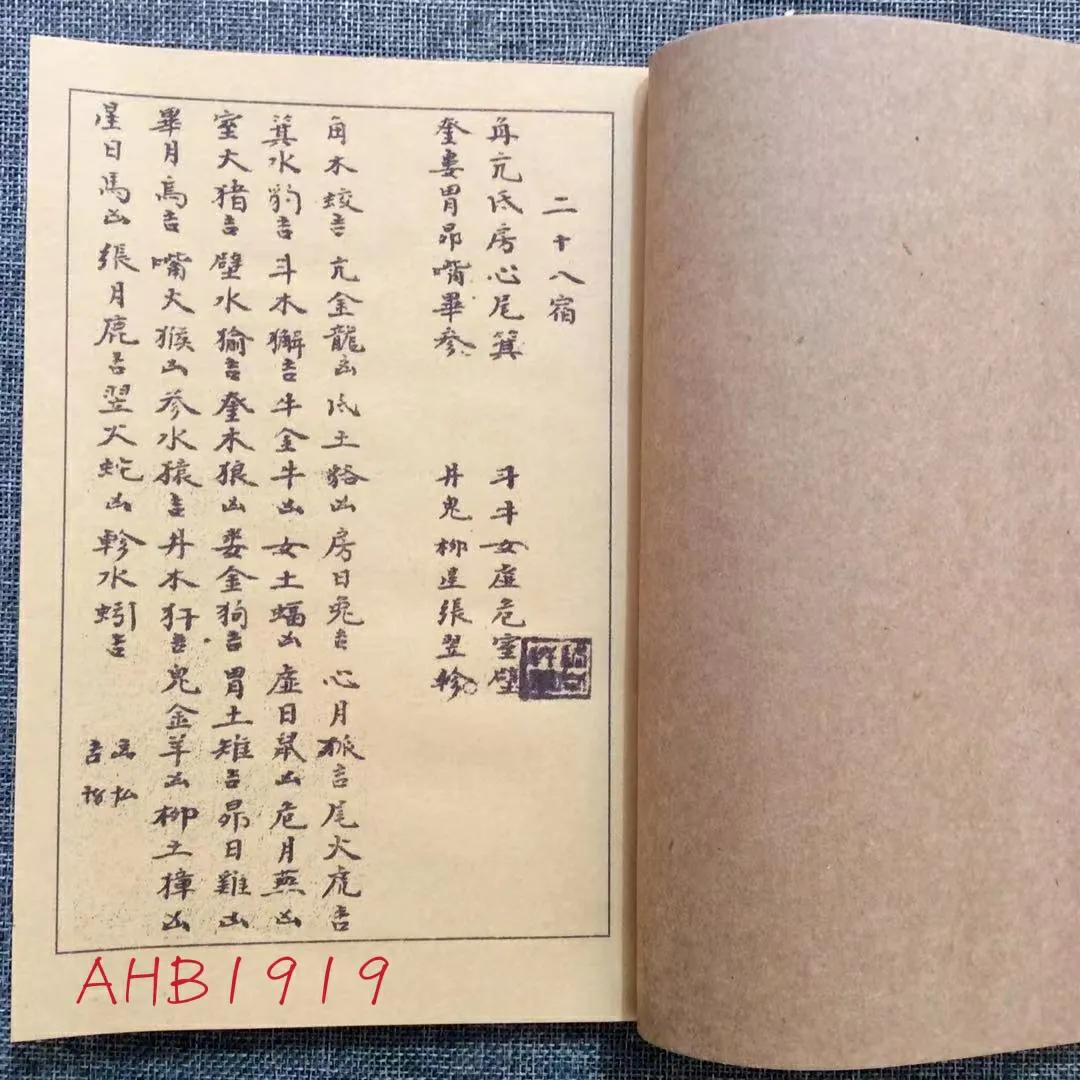 二十八宿
角亢氐房心尾箕 斗牛女虚危室壁
奎娄胃昴嘴畢参 井鬼柳星張翌軫。
角木蛟吉 亢金龍凶 氐土貉凶 房日兔吉 心月狐吉 尾火虎吉
箕水豹吉 斗木獬吉 牛金牛凶 女土蝠凶 虚日鼠凶 危月燕凶
室火猪吉 壁水㺄吉 奎木狼凶 娄金狗吉 胃土雉吉 昴日雞凶
畢月烏吉 嘴火猴凶 参水猿吉 井木犴吉 鬼金羊凶 柳土獐凶
星日馬凶 張月鹿吉 翌火蛇凶 軫水蚓吉
AHB1919